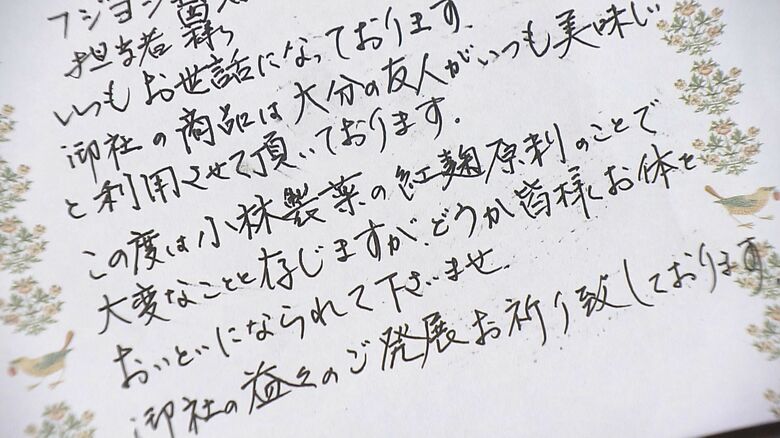 フジヨシ
担当者様
いつもお世話になっております。
御社の商品は大分の友人がいつも美味しい
と利用させて頂いております。
この度は小林製薬の紅麹原料のことで
大変なことと存じますが、どうか皆様お体を
おいといになられて下さいませ。
御社の益々のご発展お祈り致しております